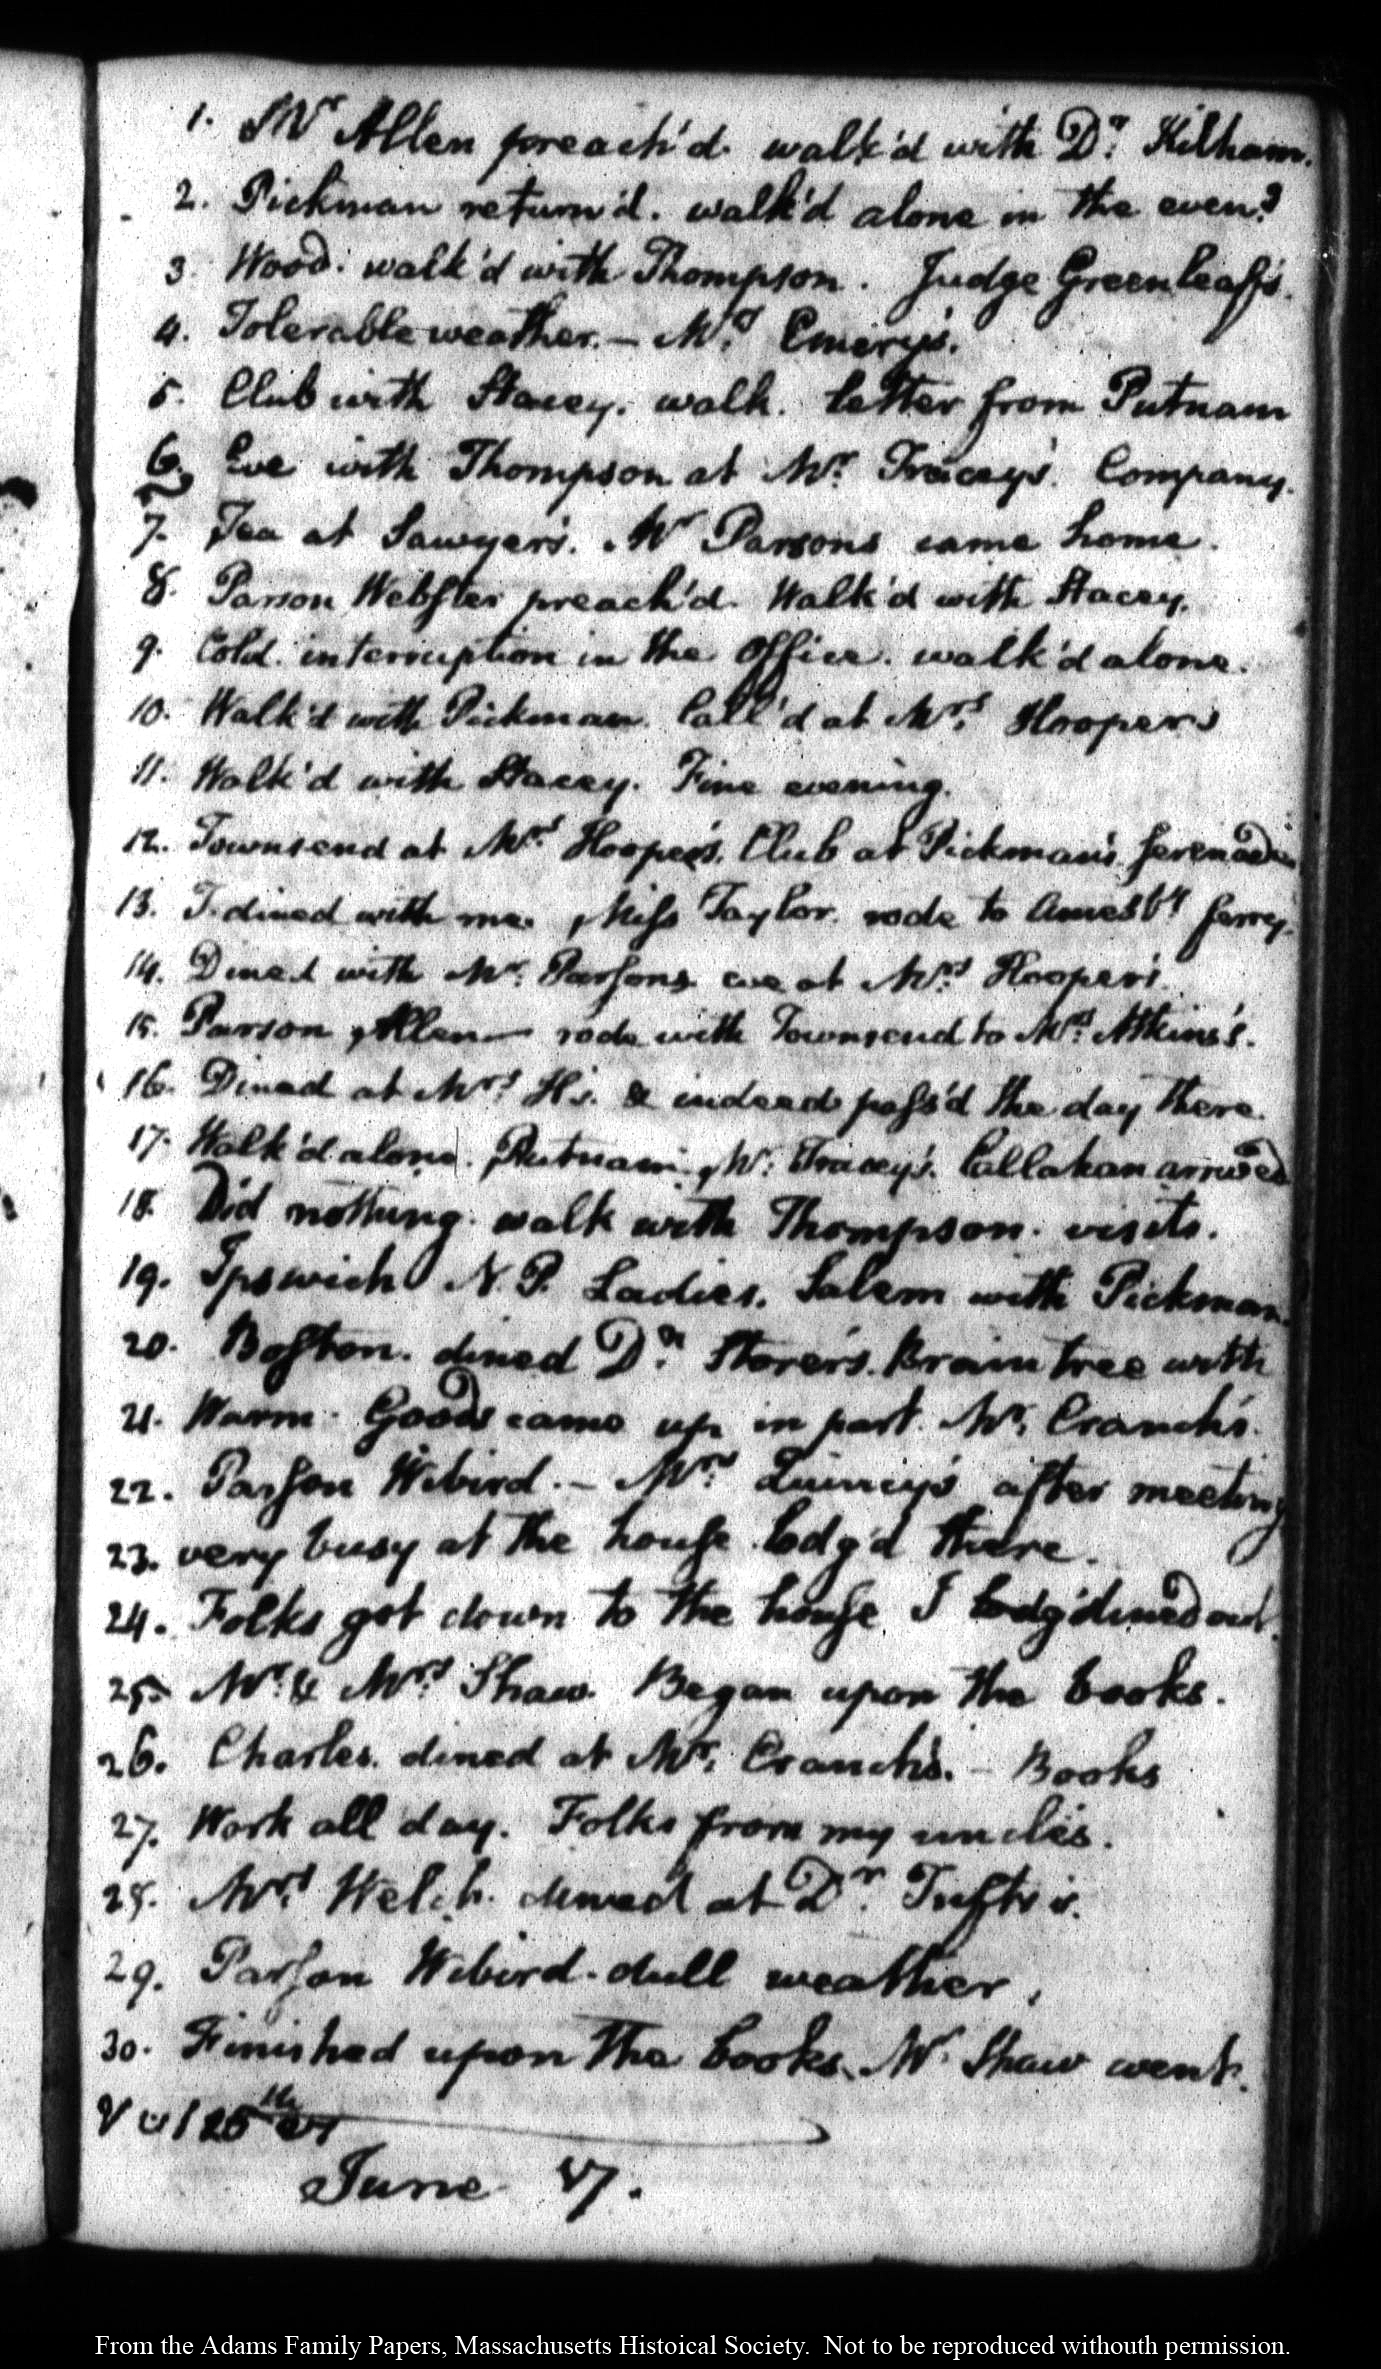 1. Mr Allen preach'd. walk'd with Dr. Kilham.
2. Pickman return'd. walk'd alone in the even.g
3. Wood. walk'd with Thompson. Judge Greenleaf's.
4. Tolerable weather. — Mrs Emery's.
5. Club with Stacey. walk. letter from Putnam
6. Eve with Thompson at Mr. Tracey's. Company.
7. Tea at Sawyer's. Mr Parsons came home.
8. Parson Webster preach'd. Walk'd with Stacey.
9. Cold. interruption in the Office. walk'd alone.
10. Walk'd with Pickman. Call'd at Mrs. Hoopers
11. Walk'd with Stacey. Fine evening.
12. Townsend at Mrs. Hooper's. Club at Pickman's.
13. T. dined with me. Miss Taylor. rode to Amesby ferry.
14. Dined with Mr. Parsons. eve at Mrs. Hooper's.
15. Parson Allen — rode with Townsend to Mrs. Atkins's.
16. Dined at Mrs. H's. & indeed pass'd the day there.
17. Walk'd alone. Putnam. Mr. Tracey's. Callahan arrived
18. Did nothing. walk with Thompson. visits.
19. Ipswich N. P. Ladies. Salem with Pickman.
20. Boston. dined Dn. Storer's. Braintree with
21. Warm. Goods came up in part. Mr. Cranch's.
22. Parson Wibird. — Mrs Quincy's after meeting
23. very busy at the house lodg'd there.
24. Folks got down to the house I lodg'd dined out.
25. Mr. & Mrs. Shaw. Began upon the books.
26. Charles. dined at Mr. Cranch's. — Books
27. Work all day. Folks from my uncle's.
28. Mrs. Welch. dined at Dr. Tufts's.
29. Parson Wibird. dull weather.
30. Finished upon the books. Mr. Shaw went.
June 87.
From the Adams Family Papers, Massachusetts Histoical Society. Not to be reproduced withouth permission.